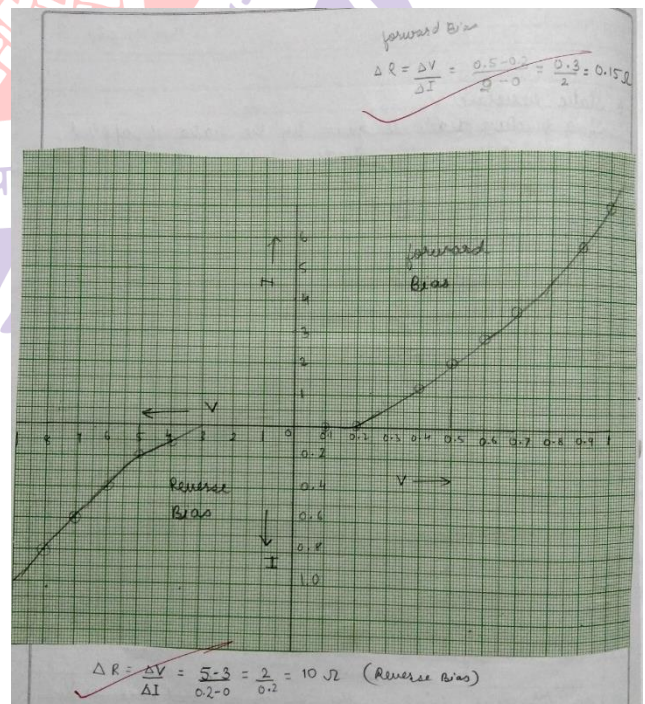 forward Bias
ΔR = ΔV/ΔI = 0.5-0.2/2-0 = 0.3/2 = 0.15Ω
6
5
4
3
2
1
I
forward
Bias
V
8 7 6 5 4 3 2 1 0 0.1 0.2 0.3 0.4 0.5 0.6 0.7 0.8 0.9 1
0.2
0.4
0.6
0.8
1.0
V
Reverse
Bias
I
ΔR = ΔV/ΔI = 5-3/0.2-0 = 2/0.2 = 10 Ω (Reverse Bias)